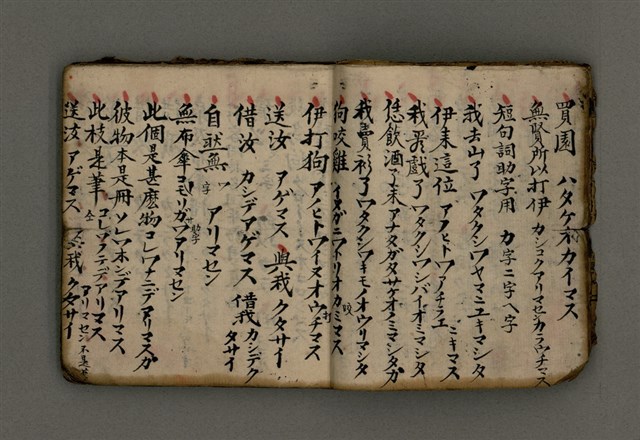 買園 ハタケヲカイマス
無賢所以打伊 カシコクアリマセンカラウチマス
短句詞助字用 カ字ニ字ヘ字
我去山了 ワタクシワヤマニユキマシタ
伊来這位 アノヒトワアチラエ
ミキマス
我看戯了 ワタクシワシバイオミマシタ
恁飲酒了未 アナタガタサケオミマシタカ
我賣衫了 ワタクシワキモノオウリマシタ
狗咬雞 イヌガニワトリオカミマス 咬
伊打狗 アノヒトワイヌオウチマス 打
送汝 アゲマス 與我 クタサイ
借汝 カシデアゲマス 借我 カシデク
タサイ
自然無 字 アリマセン
無布傘 コモリガサワアリマセン 助字
此個是甚麼物 コレワナニデアリマスカ
彼物本是冊 ソレワホンデアリマス
此枝是筆 仝 コレワフデデアリマス
アリマセン 不是
送汝 アゲマス 與我 クタサイ